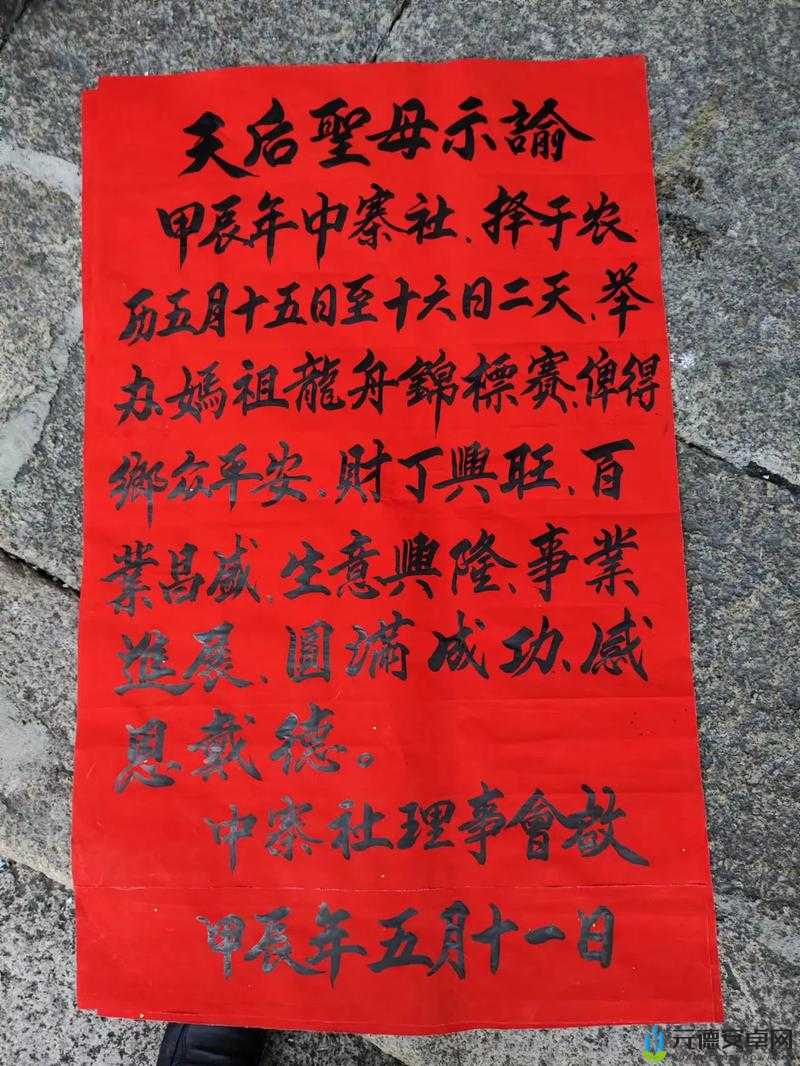 天后聖母示諭
甲辰年中寨社、择于农
历五月十五日至十六日二天、举
办媽祖龍舟錦標賽、俾得
鄉众平安、財丁興旺、百
業昌盛、生意興隆、事業
進展、圓滿成功、感
恩戴德。
中寨社理事會啟
甲辰年五月十一日
元德安卓网